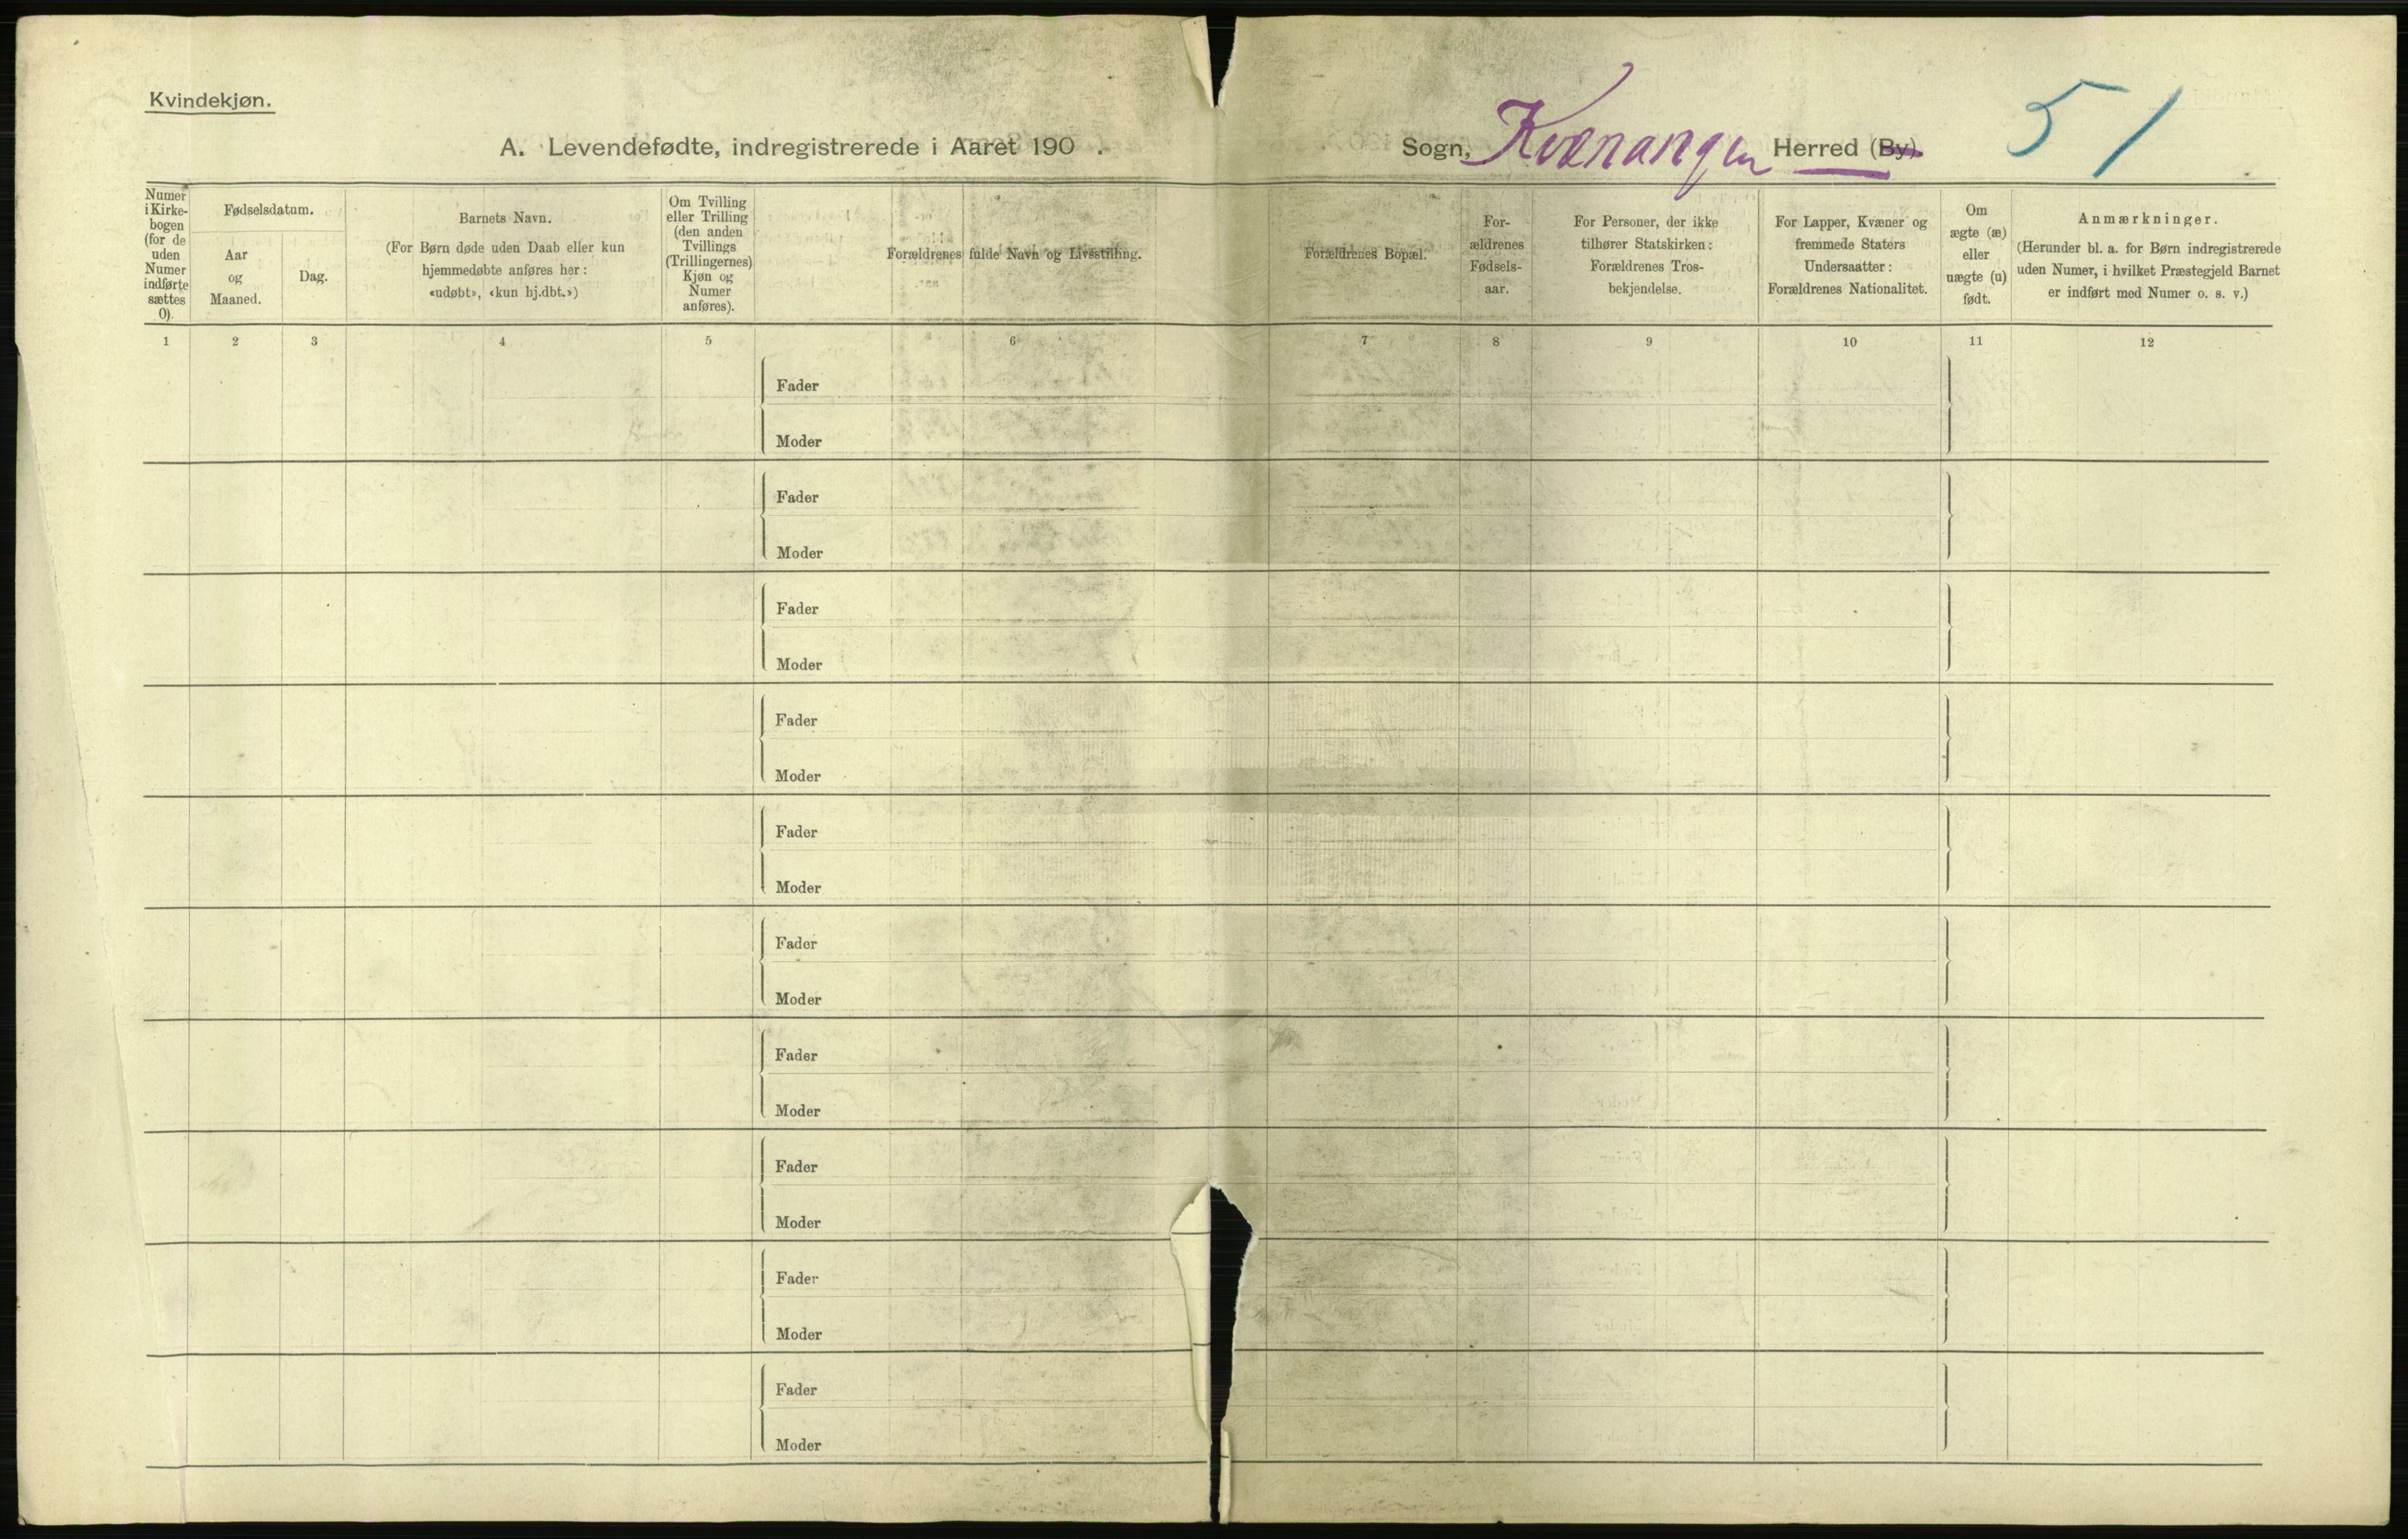 Kvindekjøn.
A. Levendefødte, indregistrerede i Aaret 190 .
Sogn, Kvænangen Herred (By).
51
Numer i Kirke-bogen (for de uden Numer indførte sættes 0).
Fødselsdatum.
Aar og Maaned.
Dag.
Barnets Navn.
(For Børn døde uden Daab eller kun
hjemmedøbte anføres her:
«udøbt», «kun hj.dbt.»)
Om Tvilling
eller Trilling
(den anden
Tvillings
(Trillingernes)
Kjøn og
Numer
anføres).
Forældrenes fulde Navn og Livsstilling.
Forældrenes Bopæl.
For-
ældrenes
Fødsels-
aar.
For Personer, der ikke
tilhører Statskirken:
Forældrenes Tros-
bekjendelse.
For Lapper, Kvæner og
fremmede Staters
Undersaatter:
Forældrenes Nationalitet.
Om
ægte (æ)
eller
uægte (u)
født.
Anmærkninger.
(Herunder bl. a. for Børn indregistrerede
uden Numer, i hvilket Præstegjeld Barnet
er indført med Numer o. s. v.)
1 2 3 4 5 6 7 8 9 10 11 12
Fader
Moder
Fader
Moder
Fader
Moder
Fader
Moder
Fader
Moder
Fader
Moder
Fader
Moder
Fader
Moder
Fader
Moder
Fader
Moder